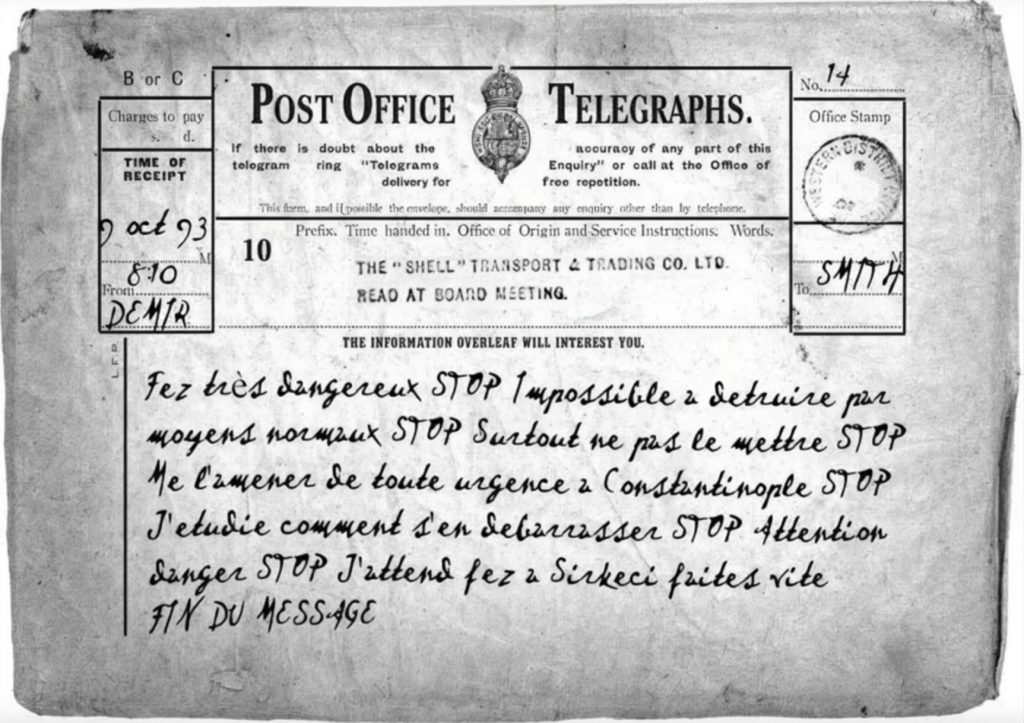 B or C
POST OFFICE TELEGRAPHS.
No. 14
Charges to pay
s. d.
Office Stamp
If there is doubt about the accuracy of any part of this
telegram ring "Telegrams Enquiry" or call at the Office of
delivery for free repetition.
This form, and if possible the envelope, should accompany any enquiry other than by telephone.
WESTERN DISTRICT OFFICE
TIME OF
RECEIPT
9 oct 93
M
8:10
From
DEMIR
10
Prefix. Time handed in. Office of Origin and Service Instructions. Words.
THE "SHELL" TRANSPORT & TRADING CO. LTD.
READ AT BOARD MEETING.
M
To SMITH
THE INFORMATION OVERLEAF WILL INTEREST YOU.
Fez très dangereux STOP Impossible a detruire par
moyens normaux STOP Surtout ne pas le mettre STOP
Me l'amener de toute urgence a Constantinople STOP
J'etudie comment s'en debarrasser STOP Attention
danger STOP J'attend fez a Sirkeci faites vite
FIN DU MESSAGE